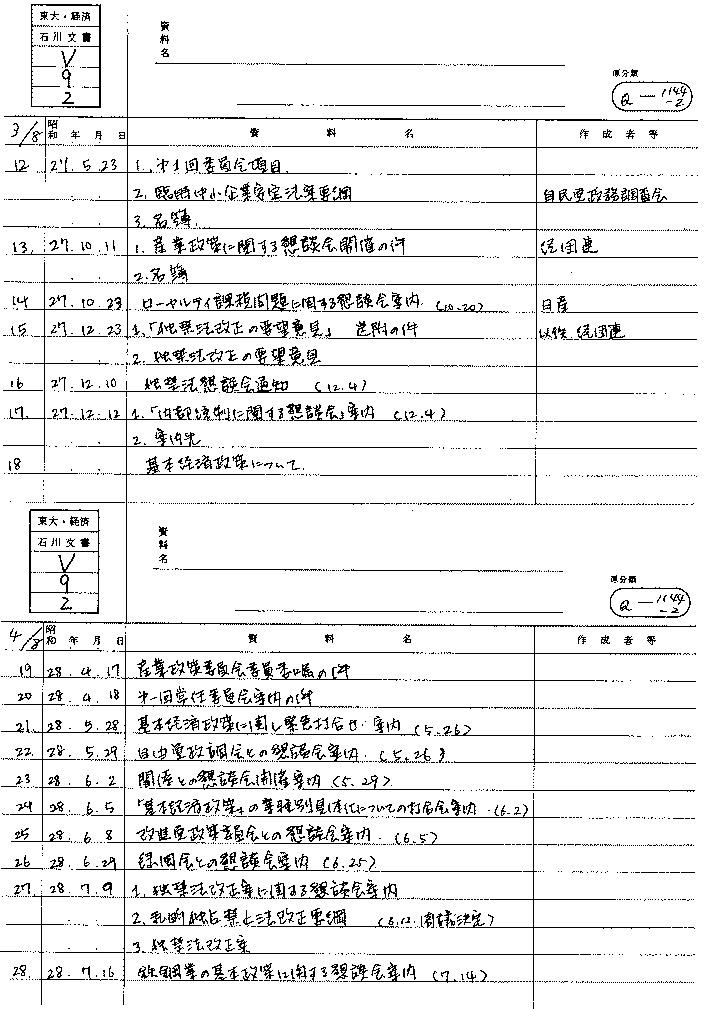 東大・経済
石川文書
V
9
2
資料名
原分類
Q-1144-2
3/8 昭和 年 月 日 資料名 作成者等
12 27.5.23 1. 第1回委員会項目
2. 臨時中小企業安定法案要綱 自民党政務調査会
3. 名簿
13. 27.10.11 1. 産業政策に関する懇談会開催の件 経団連
2. 名簿
14 27.10.23 ローヤルティ課税問題に関する懇談会案内 (10.20) 日産
15 27.12.23 1.「独禁法改正の要望意見」 送附の件 以後 経団連
2. 独禁法改正の要望意見
16 27.12.10 独禁法懇談会通知 (12.4)
17. 27.12.12 1.「内部統制に関する懇談会」案内 (12.4)
2. 案内先
18 基本経済政策について
東大・経済
石川文書
V
9
2
資料名
原分類
Q-1144-2
4/8 昭和 年 月 日 資料名 作成者等
19 28.4.17 産業政策委員会委員委嘱の件
20 28.4.18 第一回常任委員会案内の件
21. 28.5.28 基本経済政策に関し緊急打合せ 案内 (5.26)
22. 28.5.29 自由党政調会との懇談会案内 (5.26)
23 28.6.2 関係との懇談会開催案内 (5.29)
24 28.6.5 「基本経済政策」の業種別具体化についての打合会案内 (6.2)
25 28.6.8 改進党政策委員会との懇談会案内 (6.5)
26 28.6.29 緑風会との懇談会案内 (6.25)
27. 28.7.9 1. 独禁法改正案に関する懇談会案内
2. 私的独占禁止法改正要綱 (閣議決定)
3. 独禁法改正案
28. 28.7.16 鉄鋼業の基本政策に関する懇談会案内 (7.14)